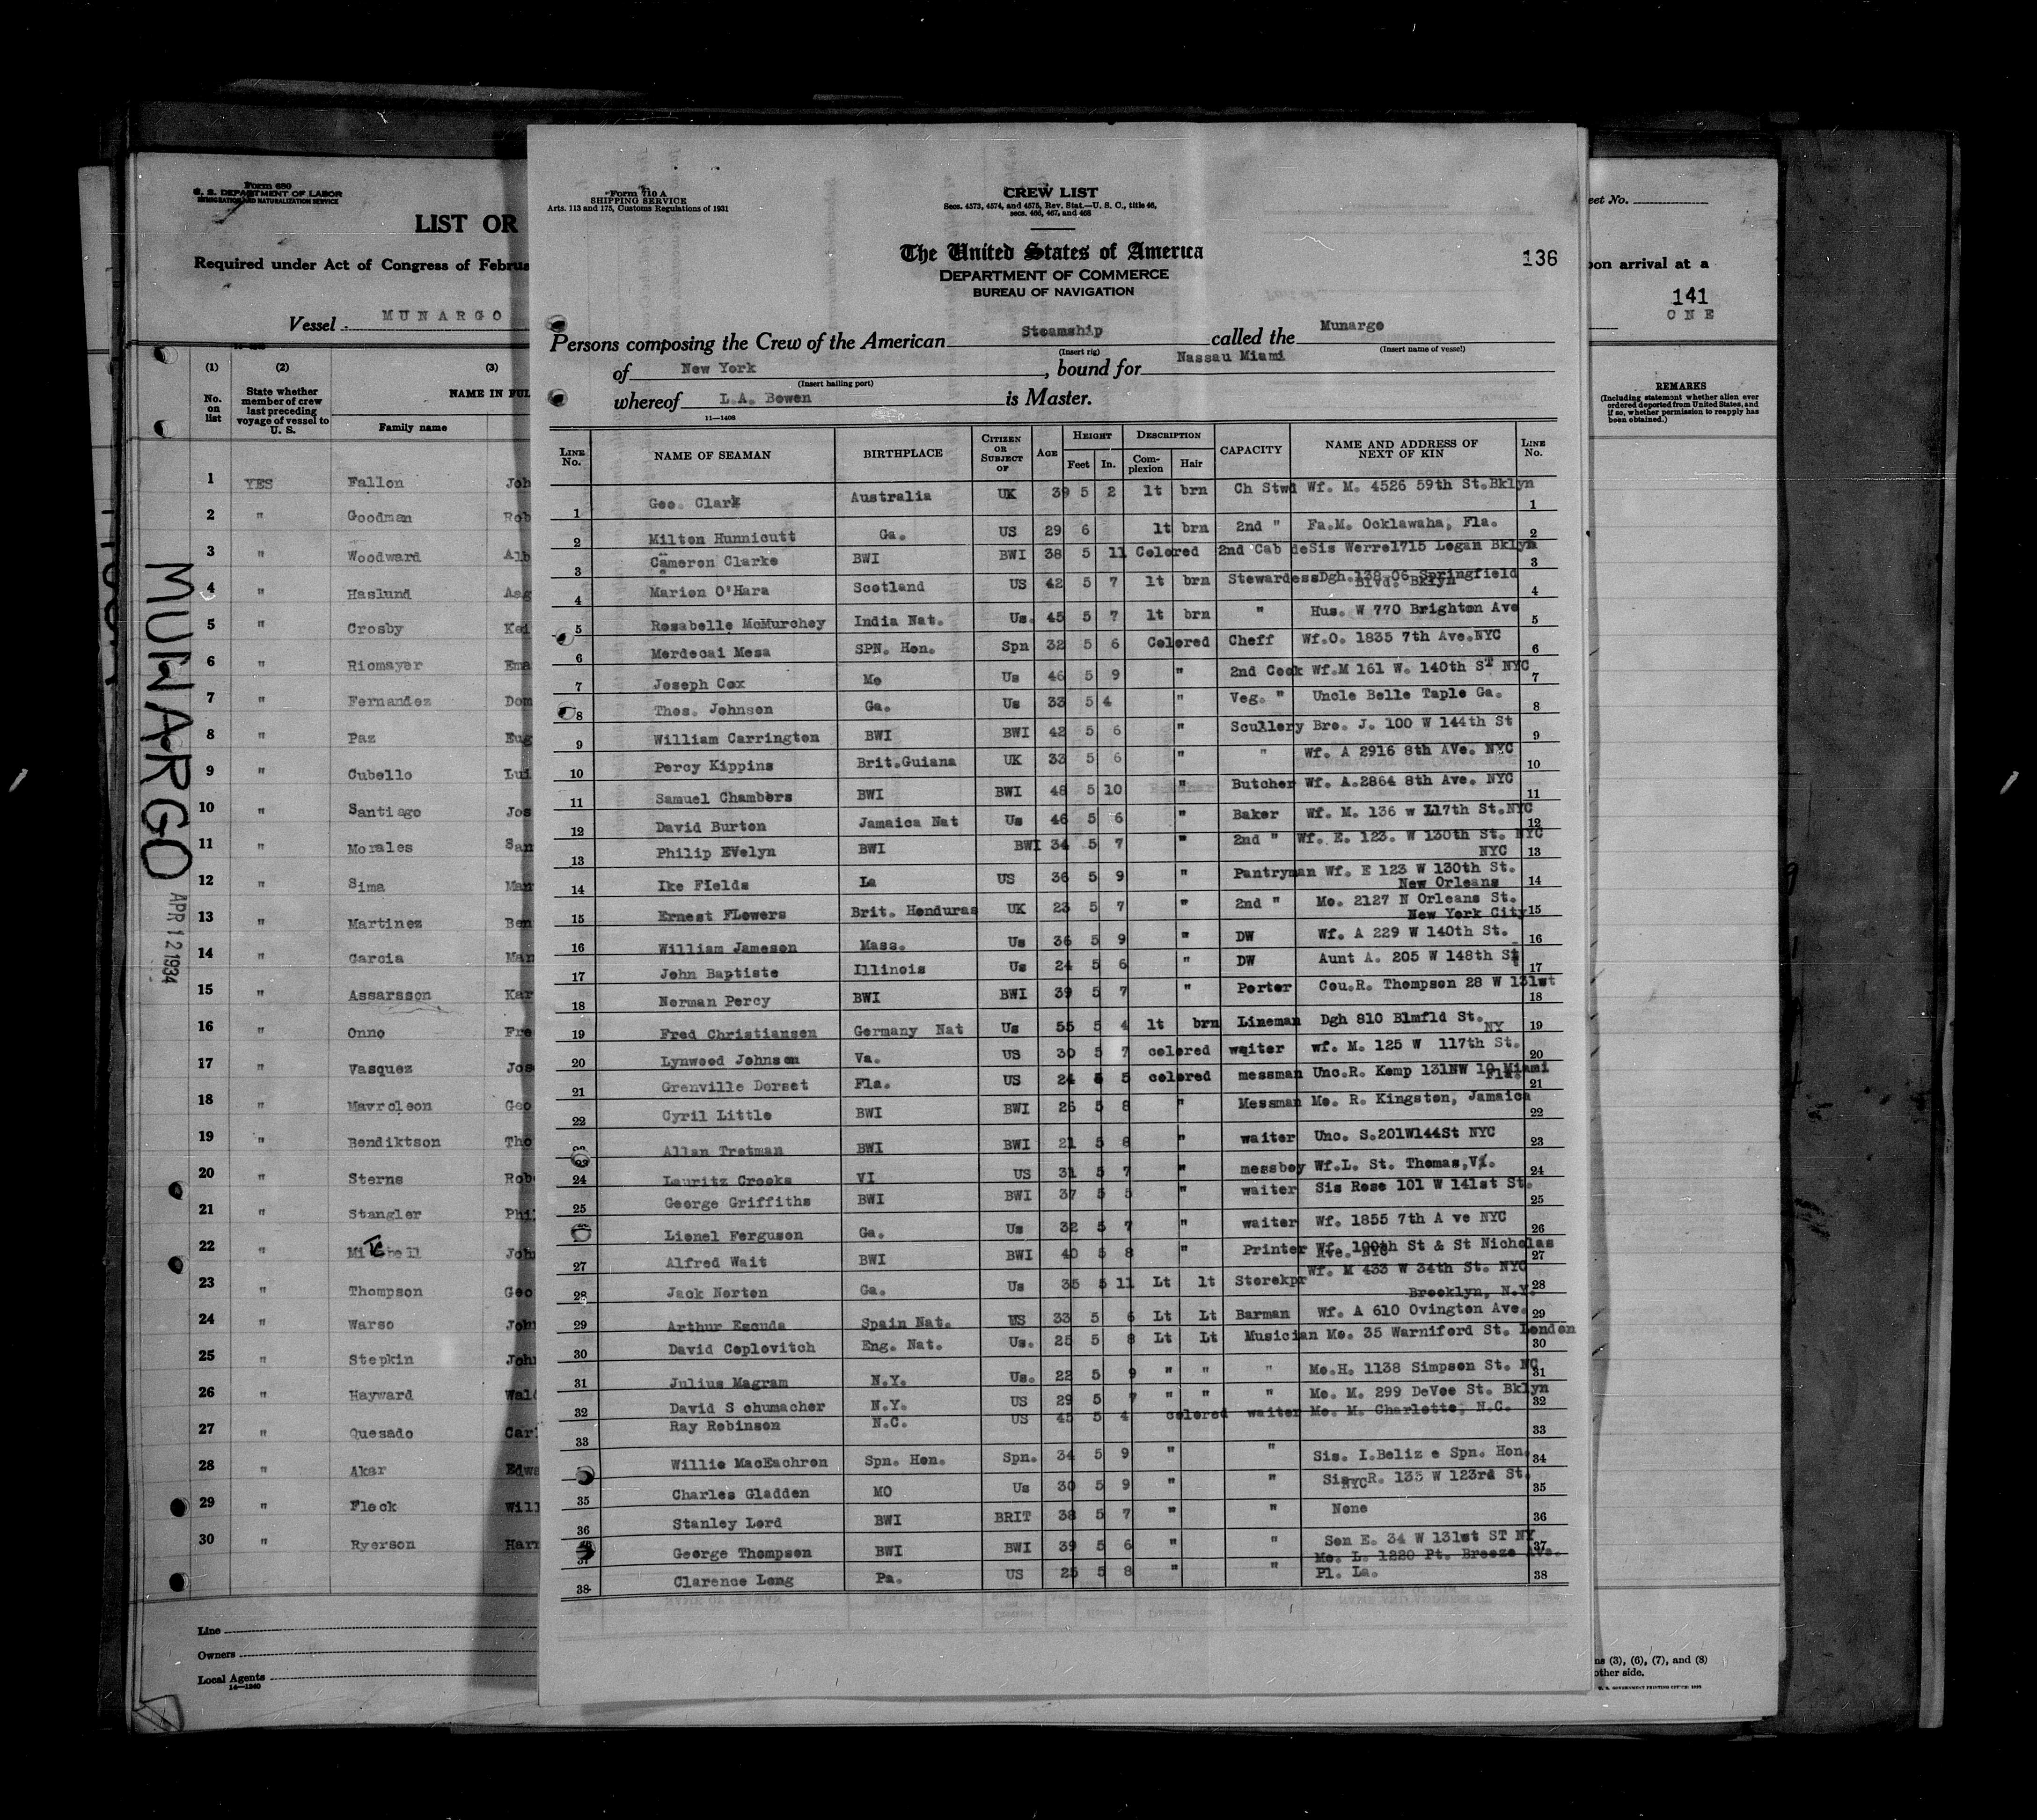 Form 680
U. S. DEPARTMENT OF LABOR
IMMIGRATION AND NATURALIZATION SERVICE
LIST OR
Required under Act of Congress of Februa
Vessel MUNARGO
(1) (2) (3)
No. on list
State whether member of crew last preceding voyage of vessel to U. S.
NAME IN FUL
Family name
1 YES Fallon Joh
2 " Goodman Rob
3 " Woodward Alb
4 " Haslund Asg
5 " Crosby Kei
6 " Ricmayer Ema
7 " Fernandez Dom
8 " Paz Eug
9 " Cubello Lui
10 " Santiago Jos
11 " Morales San
12 " Sima Man
13 " Martinez Ben
14 " Garcia Man
15 " Assarsson Kar
16 " Onno Fre
17 " Vasquez Jos
18 " Mavroleon Geo
19 " Bendiktson Tho
20 " Sterns Rob
21 " Stangler Phi
22 " Joh
23 " Thompson Geo
24 " Warso Joh
25 " Stepkin John
26 " Hayward Wal
27 " Quesado Car
28 " Akar Edwa
29 " Fleck Will
30 " Ryerson Harr
Line
Owners
Local Agents
14—1240
MUNARGO
APR 12 1934
Form 710 A
SHIPPING SERVICE
Arts. 113 and 175, Customs Regulations of 1931
CREW LIST
Secs. 4573, 4574, and 4575, Rev. Stat.—U. S. C., title 46,
secs. 466, 467, and 468
The United States of America
DEPARTMENT OF COMMERCE
BUREAU OF NAVIGATION
136
Persons composing the Crew of the American Steamship called the Munargo
(Insert rig) (Insert name of vessel)
of New York, bound for Nassau Miami
(Insert hailing port)
whereof L.A. Bowen is Master.
11—1406
LINE No. NAME OF SEAMAN BIRTHPLACE CITIZEN OR SUBJECT OF AGE HEIGHT Feet In. DESCRIPTION Complexion Hair CAPACITY NAME AND ADDRESS OF NEXT OF KIN LINE No.
1 Geo. Clark Australia UK 39 5 2 lt brn Ch Stwd Wf. M. 4526 59th St.Bklyn 1
2 Milton Hunnicutt Ga. US 29 6 lt brn 2nd " Fa.M. Ocklawaha, Fla. 2
3 Cameron Clarke BWI BWI 38 5 11 Colored 2nd Cab deSis Werrel715 Logan Bklyn 3
4 Marion O'Hara Scotland US 42 5 7 lt brn StewardessDgh.138-06 Springfield
Blvd. Bklyn 4
5 Rosabelle McMurchey India Nat. Us. 45 5 7 lt brn " Hus. W 770 Brighton Ave 5
6 Mordecai Mesa SPN. Hon. Spn 32 5 6 Colored Cheff Wf.O. 1835 7th Ave.NYC 6
7 Joseph Cox Mo Us 46 5 9 " 2nd Cook Wf.M 161 W. 140th ST NYC 7
8 Thos. Johnson Ga. Us 33 5 4 " Veg. " Uncle Belle Taple Ga. 8
9 William Carrington BWI BWI 42 5 6 " Scullery Bro. J. 100 W 144th St 9
10 Percy Kippins Brit.Guiana UK 33 5 6 " " Wf. A 2916 8th AVe. NYC 10
11 Samuel Chambers BWI BWI 48 5 10 " Butcher Wf. A.2864 8th Ave. NYC 11
12 David Burton Jamaica Nat Us 46 5 6 " Baker Wf. M. 136 w 117th St.NYC 12
13 Philip EVelyn BWI BWI 34 5 7 " 2nd " Wf. E. 123. W 130th St. NYC 13
NYC
14 Ike FIelds La US 36 5 9 " Pantryman Wf. E 123 W 130th St. 14
New Orleans
15 Ernest FLowers Brit. Honduras UK 23 5 7 " 2nd " Mo. 2127 N Orleans St. 15
New York City
16 William Jameson Mass. Us 36 5 9 " DW Wf. A 229 W 140th St. 16
17 John Baptiste Illinois Us 24 5 6 " DW Aunt A. 205 W 148th St 17
18 Norman Percy BWI BWI 39 5 7 " Porter Cou.R. Thompson 28 W 131st 18
19 Fred Christiansen Germany Nat Us 55 5 4 lt brn Lineman Dgh 810 Blmfld St. 19
NY
20 Lynwood Johnson Va. US 30 5 7 colored waiter wf. M. 125 W 117th St. 20
21 Grenville Dorset Fla. US 24 5 5 colored messman Unc.R. Kemp 131NW 10 Miami
Fla. 21
22 Cyril Little BWI BWI 26 5 8 " Messman Mo. R. Kingston, Jamaica 22
23 Allan Trotman BWI BWI 21 5 8 " waiter Unc. S.201W144St NYC 23
24 Lauritz Crooks VI US 31 5 7 " messboy Wf.L. St. Thomas,VI. 24
25 George Griffiths BWI BWI 37 5 5 " waiter Sis Rose 101 W 141st St. 25
Lionel Ferguson Ga. Us 32 5 7 " waiter Wf. 1855 7th A ve NYC 26
27 Alfred Wait BWI BWI 40 5 8 " Printer Wf. 190th St & St Nicholas
Ave. NYC 27
28 Jack Norton Ga. Us 35 5 11 Lt lt Storekpr Wf. M 433 W 34th St. NYC 28
Brooklyn, N.Y.
29 Arthur Escuda Spain Nat. US 33 5 6 Lt Lt Barman Wf. A 610 Ovington Ave. 29
30 David Coplovitch Eng. Nat. Us. 25 5 8 Lt Lt Musician Mo. 35 Warniford St. London 30
31 Julius Magram N.Y. Us. 22 5 9 " " " Mo.H. 1138 Simpson St. NC 31
32 David S chumacher N.Y. US 29 5 7 " " " Mo. M. 299 DeVoe St. Bklyn 32
33 Ray Robinson N.C. US 45 5 4 colored waiter Mo. M. Charlotte, N.C. 33
Willie MacEachron Spn. Hon. Spn. 34 5 9 " " Sis. I.Beliz e Spn. Hon. 34
35 Charles Gladden MO Us 30 5 9 " " Sis. R. 135 W 123rd St.
NYC 35
36 Stanley Lord BWI BRIT 38 5 7 " " None 36
37 George Thompson BWI BWI 39 5 6 " " Son E. 34 W 131st ST NY 37
Mo. L. 1220 Pt. Breeze Ave.
38 Clarence Long Pa. US 25 5 8 " " Pl. La. 38
eet No.
pon arrival at a
141
ONE
REMARKS
(Including statement whether alien ever ordered deported from United States, and if so, whether permission to reapply has been obtained.)
ns (3), (6), (7), and (8)
other side.
U. S. GOVERNMENT PRINTING OFFICE: 1932